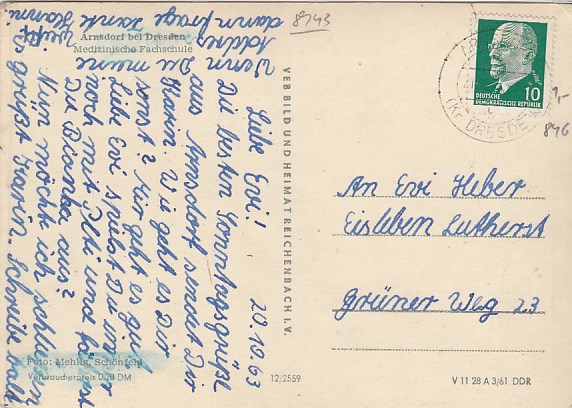 Arnsdorf bei Dresden
Medizinische Fachschule
8943
20.10.63
Liebe Evi!
Die besten Sonntagsgrüße
aus Arnsdorf sendet Dir
Karin. Wie geht es Dir
sonst? Mir geht es gut.
Liebe Evi spielst Du immer
noch mit Peti und
Du Bianka aus?
Nun möchte ich schließen
es grüßt Karin. Schreibe bald.
Wenn Du meine
Address
dann frage Tante
Hanni
VEB BILD UND HEIMAT REICHENBACH I. V.
DEUTSCHE
DEMOKRATISCHE REPUBLIK
10
(Kr. DRESDEN
1,-
846
An Evi Heber
Eisleben Lutherst
Grüner Weg 23
Foto: Mehlig, Schönfeld
Verbraucherpreis 0,20 DM
12/2559
V 11 28 A 3/61 DDR